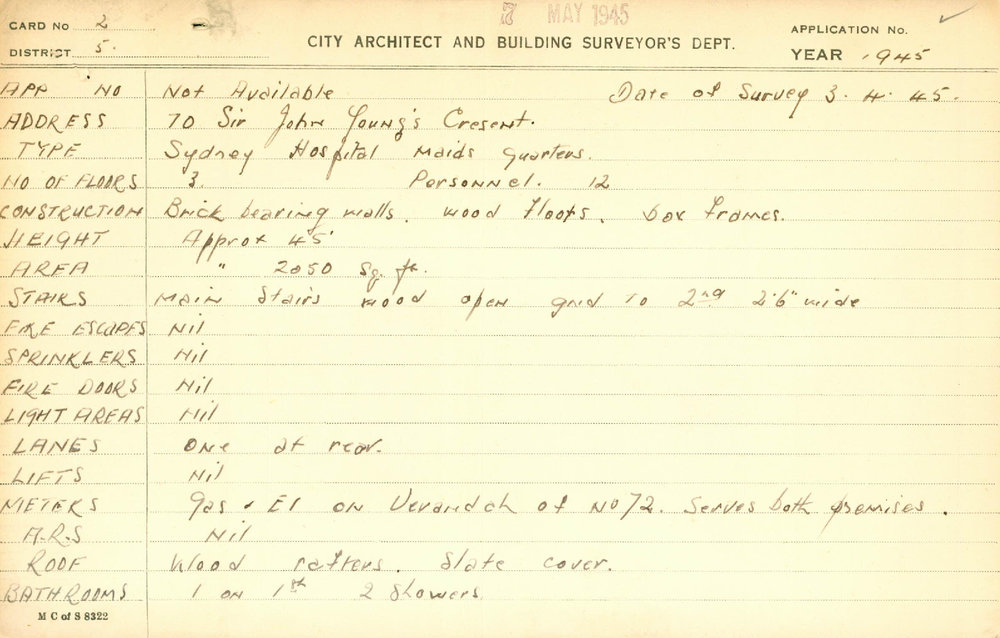 7 MAY 1945
CARD No 2
DISTRICT 5.
CITY ARCHITECT AND BUILDING SURVEYOR'S DEPT.
APPLICATION No.
YEAR 1945
APP NO Not Available Date of Survey 3.4.45.
ADDRESS 70 Sir John Young's Cresent.
TYPE Sydney Hospital Maids Quarters.
NO OF FLOORS 3. Personnel. 12
CONSTRUCTION Brick bearing walls. wood floors. box frames.
HEIGHT Approx 45'
AREA " 2050 Sq. ft.
STAIRS Main Stairs wood open grd to 2nd 2'6" wide
FIRE ESCAPES Nil
SPRINKLERS Nil
FIRE DOORS Nil
LIGHT AREAS Nil
LANES One at rear.
LIFTS Nil
METERS Gas & El on Verandah of No 72. Serves both premises.
A.R.S Nil
ROOF Wood rafters. Slate cover.
BATHROOMS 1 on 1st 2 Showers
M C of S 8322